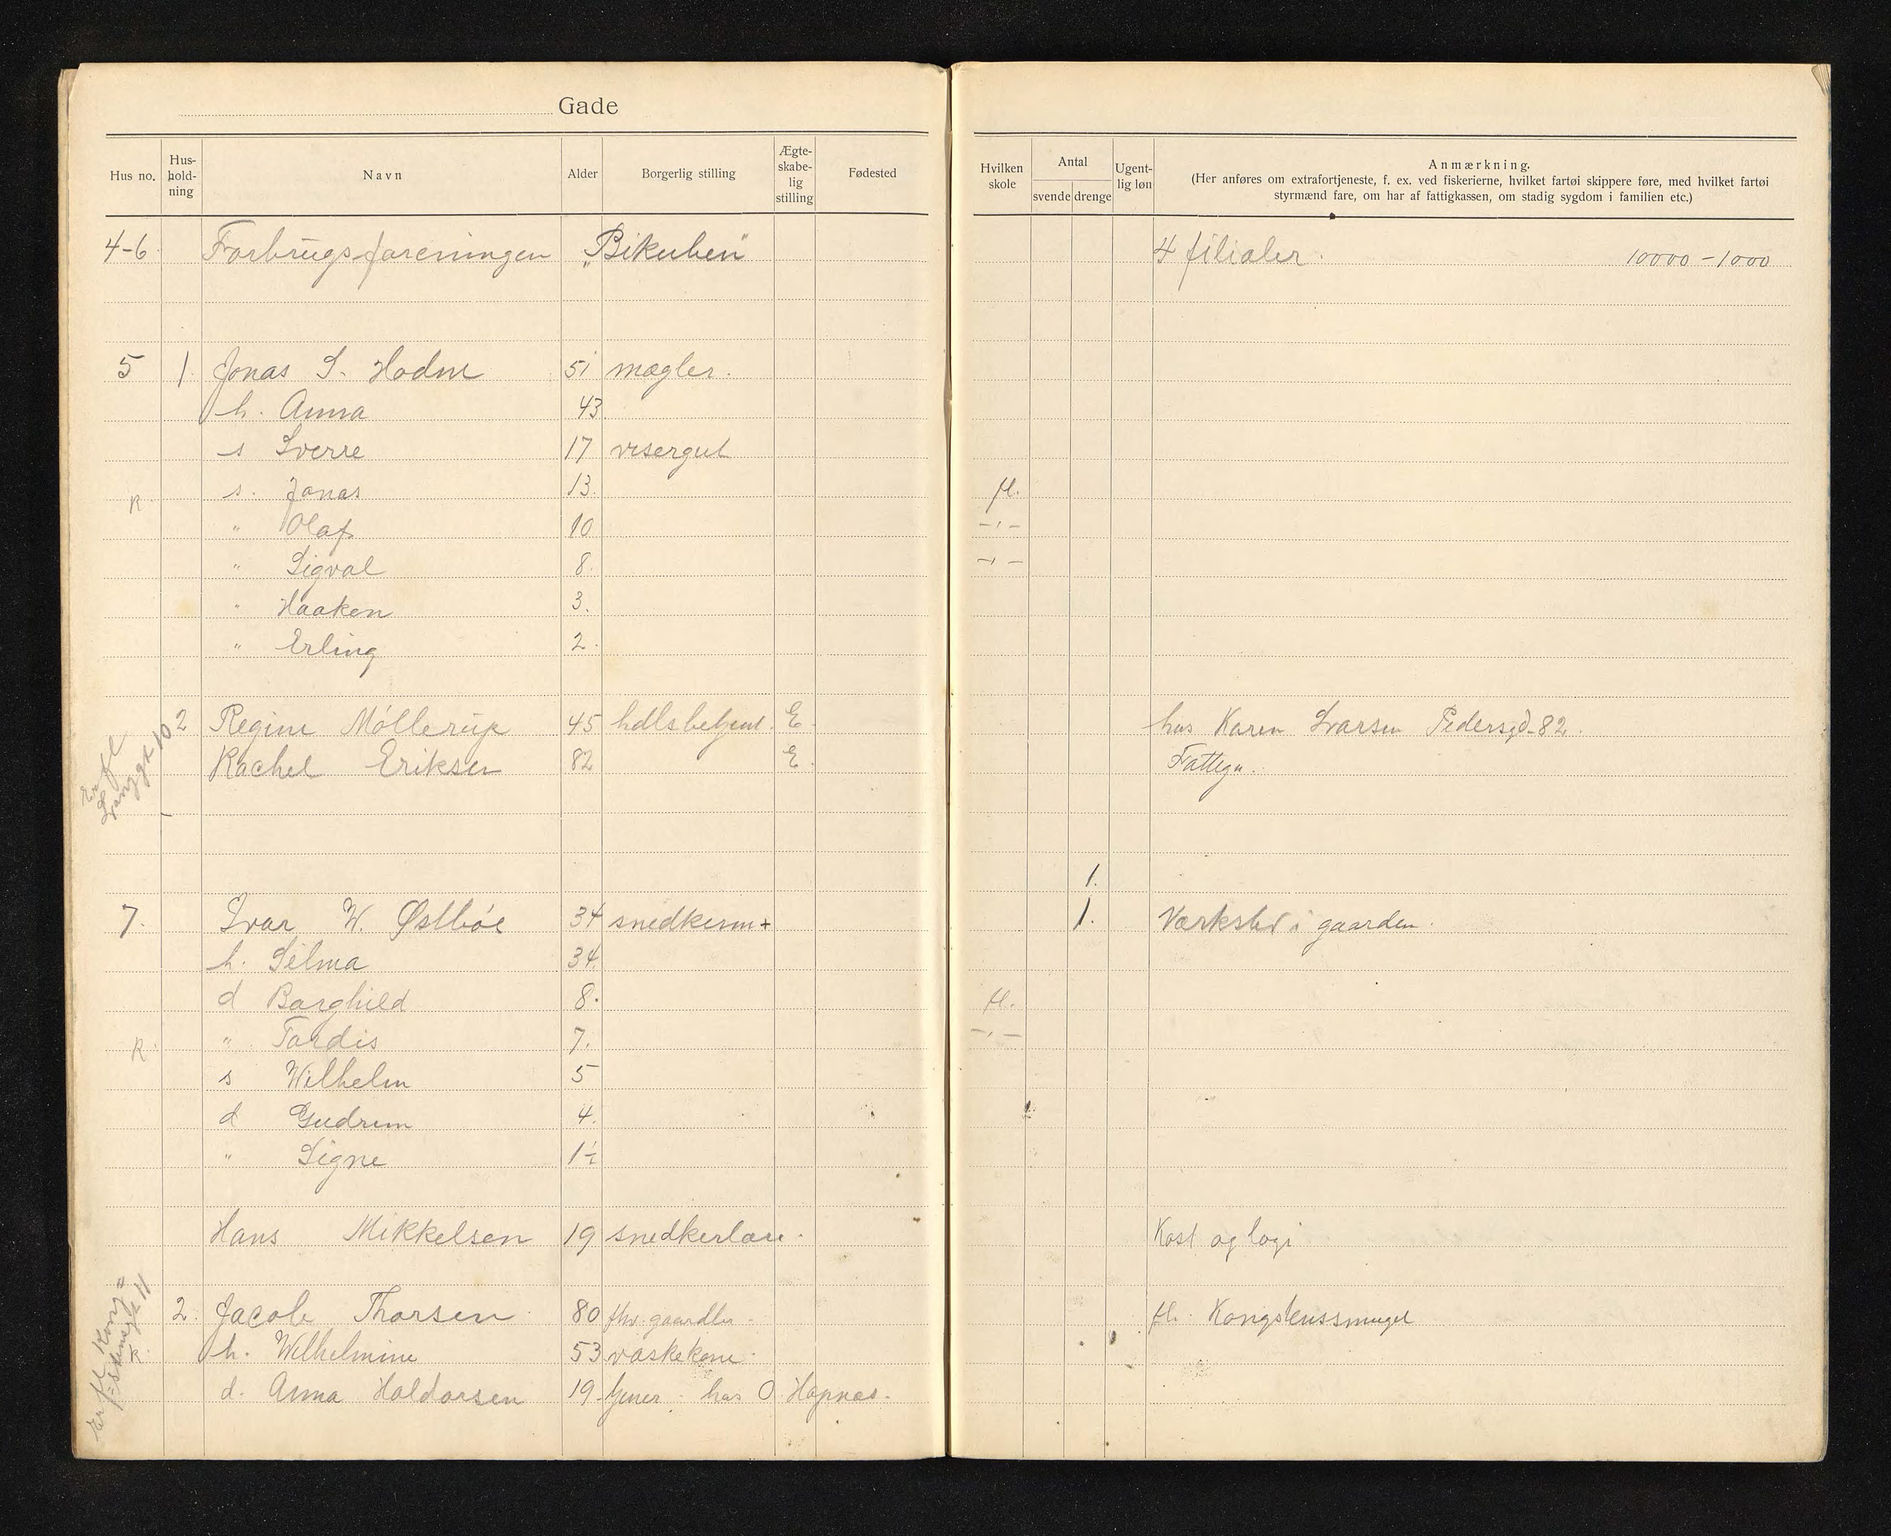 Gade
Hus no. Hus-holdning Navn Alder Borgerlig stilling Ægte-skabe-lig stilling Fødested Hvilken skole Antal svende drenge Ugent-lig løn Anmærkning.
(Her anføres om extrafortjeneste, f. ex. ved fiskerierne, hvilket fartøi skippere føre, med hvilket fartøi
styrmænd fare, om har af fattigkassen, om stadig sygdom i familien etc.)
4-6 Forbrugsforeningen „Bikuben" 4 filialer. 10000 - 1000
5 1 Jonas S. Hodne 51 mægler.
h. Anna 43
s Sverre 17 visergut
R. s. Jonas 13. fl.
" Olaf 10 -"-
" Sigval 8. -"-
" Haaken 3.
" Erling 2.
2 Regine Møllerup 45 hdlsbetjent. E. hos Karen Ivarsen Pedersgd. 82.
Rachel Eriksen 82 E. Fattigu.
Er fl
10
1.
7. Ivar W. Østbøe 34 snedkerm + 1. Værksted i gaarden.
h. Selma 34.
d Borghild 8. fl.
R. " Tordis 7. -"-
s Wilhelm 5
d Gudrun 4.
" Signe 1½
Hans Mikkelsen 19 snedkerlære. Kost og logi
2. Jacob Thorsen 80 fhv. gaardbr. fl. Kongstenssmuget
R. h. Wilhelmine 53 vaskekone.
d. Anna Haldorsen 19 tjener hos O. Hapnes.
Er fl. Kong=
stensgt 11